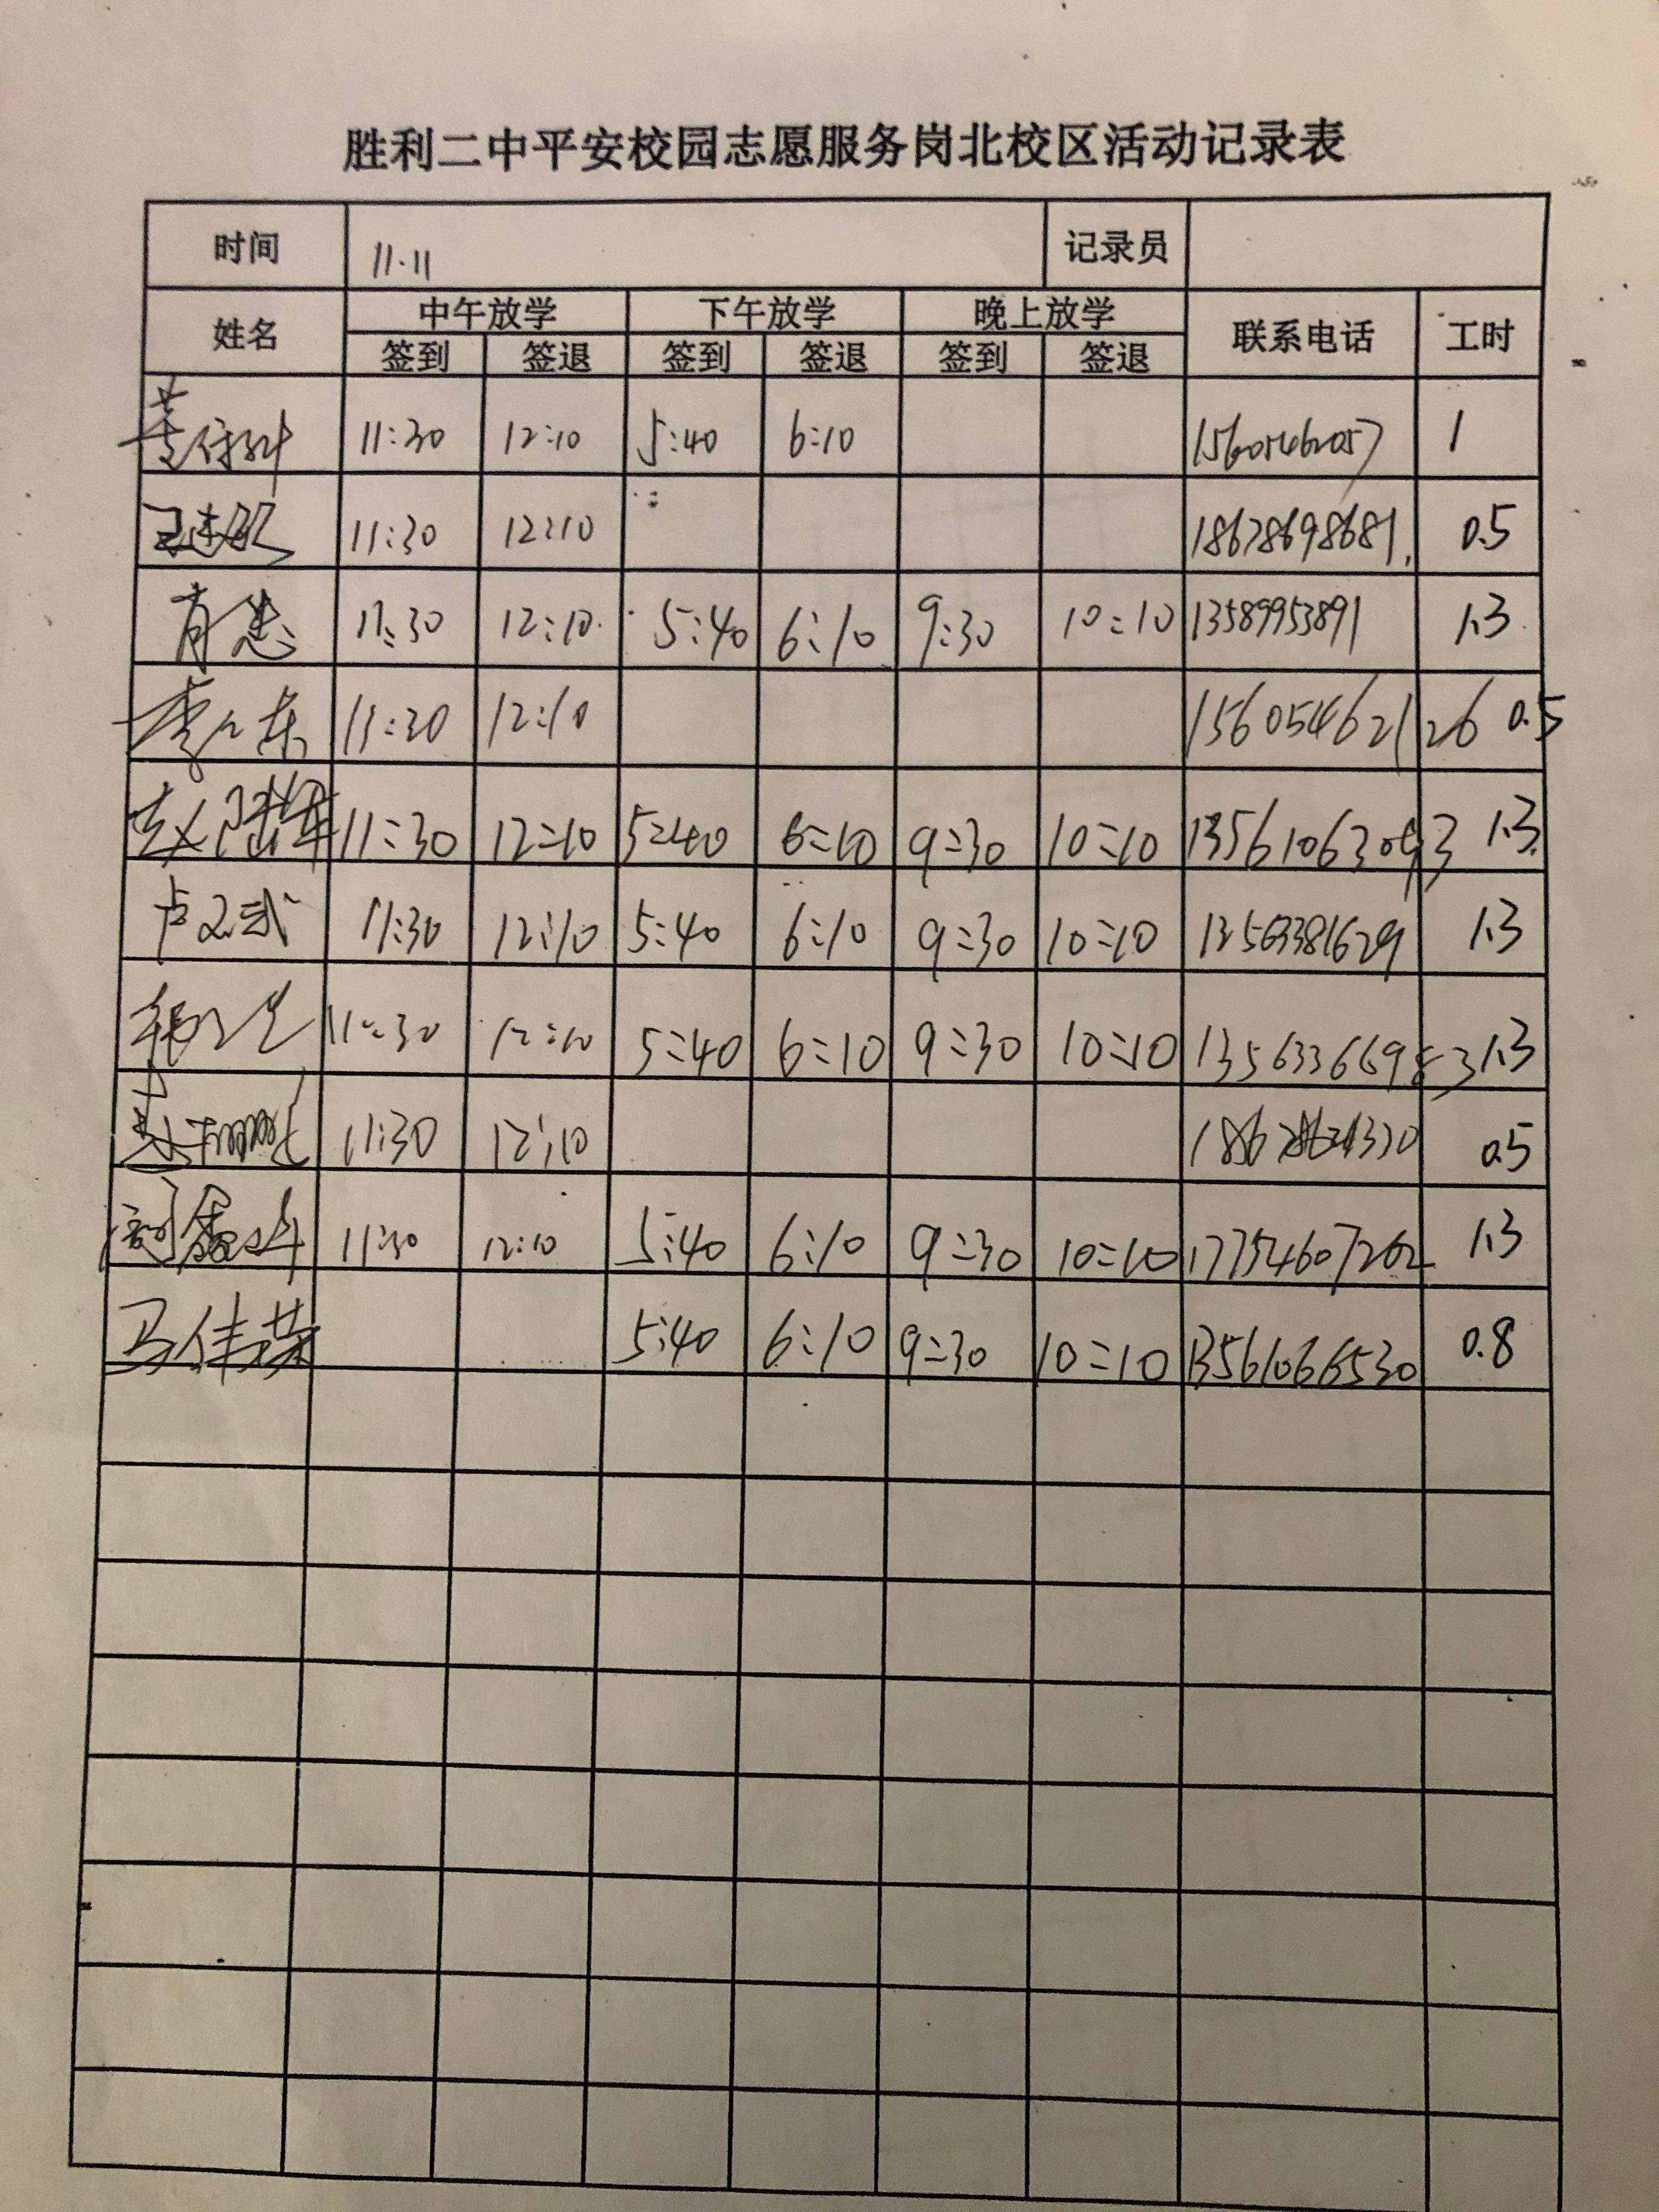 胜利二中平安校园志愿服务岗北校区活动记录表
时间 11.11 记录员
姓名 中午放学 下午放学 晚上放学 联系电话 工时
签到 签退 签到 签退 签到 签退
11:30 12:10 5:40 6:10 15605462057 1
11:30 12:10 18678698681 0.5
肖 11:30 12:10 5:40 6:10 9:30 10:10 13589953891 1.3
李 东 11:30 12:10 15605462126 0.5
赵 军 11:30 12:10 5:40 6:10 9:30 10:10 1.3
卢文武 11:30 12:10 5:40 6:10 9:30 10:10 1.3
11:30 12:10 5:40 6:10 9:30 10:10 1.3
11:30 12:10 0.5
11:30 12:10 5:40 6:10 9:30 10:10 17754607262 1.3
马佳 5:40 6:10 9:30 10:10 13561066530 0.8